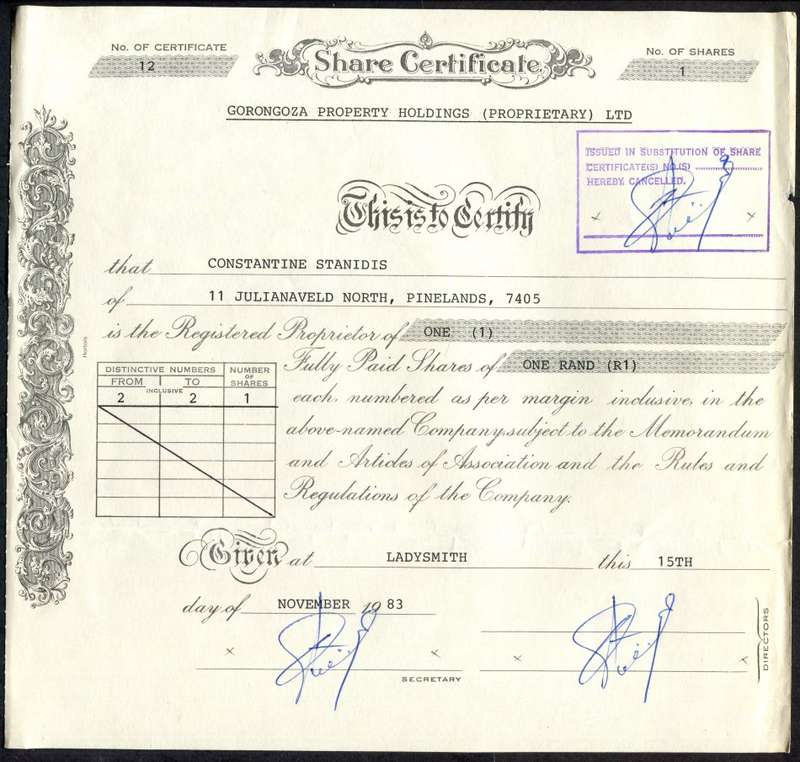 No. OF CERTIFICATE
12
Share Certificate
No. OF SHARES
1
GORONGOZA PROPERTY HOLDINGS (PROPRIETARY) LTD
ISSUED IN SUBSTITUTION OF SHARE
CERTIFICATE(S) NO.(S) 9
HEREBY CANCELLED.
This is to Certify
that CONSTANTINE STANIDIS
of 11 JULIANAVELD NORTH, PINELANDS, 7405
is the Registered Proprietor of ONE (1)
Fully Paid Shares of ONE RAND (R1)
each, numbered as per margin inclusive, in the
above-named Company, subject to the Memorandum
and Articles of Association and the Rules and
Regulations of the Company.
DISTINCTIVE NUMBERS NUMBER OF SHARES
FROM INCLUSIVE TO
2 2 1
Given at LADYSMITH this 15TH
day of NOVEMBER 1983
SECRETARY
DIRECTORS